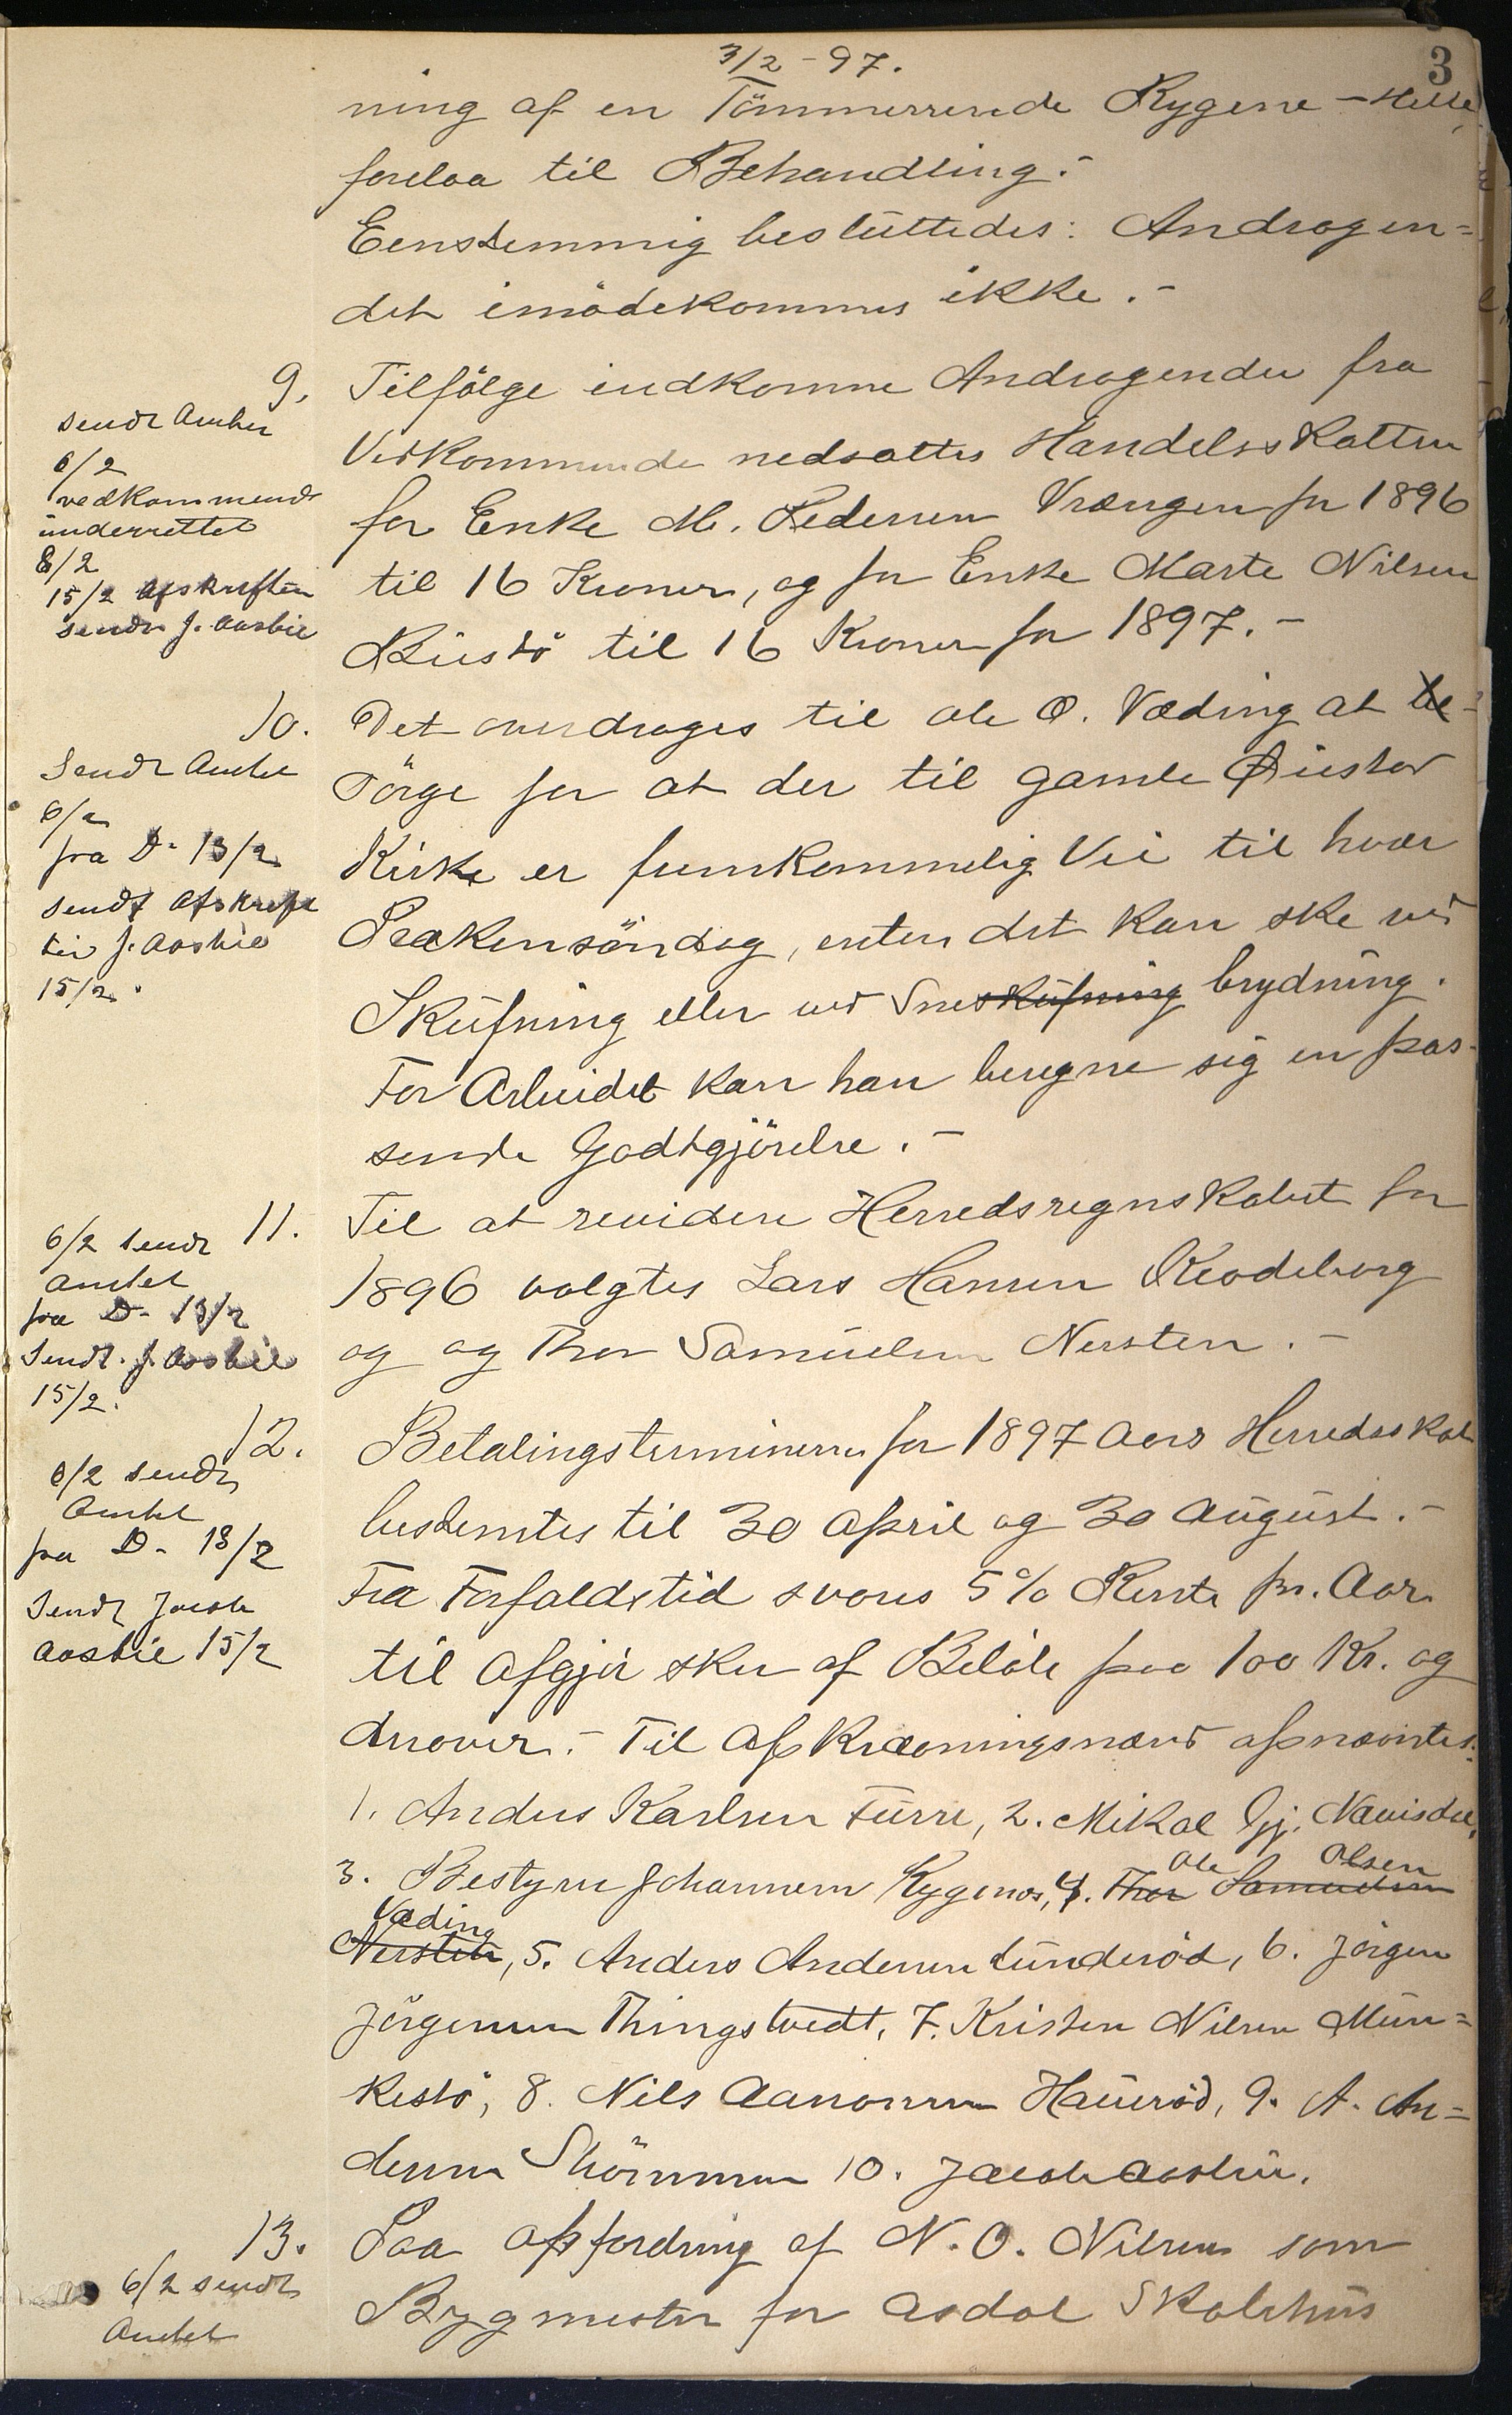 3/2 - 97.
3
ning af en Tömmerrende Rygene - Helle,
forelaa til Behandling.-
Eenstemmig besluttedes: Andragen=
det imödekommes ikke.-
9.
Tilfölge indkomne Andragender fra
Vedkommende nedsattes Handelsskatten
for Enke M. Pedersen Vrængen for 1896
til 16 Kroner, og for Enke Marte Nilsen
Buestö til 16 Kroner for 1897.-
sendt Amtet
6/2
vedkommende
underrettet
8/2
15/2 Afskriften
sendt J. Aasbie
10.
Det overdrages til Ole O. Væding at be-
sörge for at der til gamle Öiestad
Kirke er fremkommelig Vei til hver
Prækensöndag, enten det kan ske ved
Skufning eller ved Sneskufning brydning.
For Arbeidet kan han beregne sig en pas-
sende Godtgjörelse.-
Sendt Amtet
6/2
fra D- 13/2
sendt Afskrift
til J. Aasbie
15/2.
11.
Til at revidere Herredsregnskabet for
1896 valgtes Lars Hansen Rödeborg
og og Thor Samuelsen Nersten.-
6/2 sendt
amtet
fra D- 13/2
Sendt. J. Aasbie
15/2.
12.
Betalingsterminerne for 1897 Aars Herredsskat
bestemtes til 30 April og 30 August.-
Fra Forfaldstid svares 5% Rente pr. Aar
til Afgjör sker af Belöb paa 100 Kr. og
derover.- Til Afkrævningsmænd opnævntes:
1. Anders Karlsen Furre, 2. Mikal Gj. Nævisdal,
3. Bestyrer Johannesen Rygene, 4. Thor Samuelsen
Ole Olsen
Væding
Nersten, 5. Anders Andersen Lunderöd, 6. Jörgen
Jörgensen Thingstvedt, 7. Kristen Nilsen Mun=
kestö, 8. Nils Aanonsen Haueröd, 9. A. An=
dersen Strömmen 10. Jacob Aasbie.
6/2 sendt
Amtet
fra D- 13/2
Sendt Jacob
Aasbie 15/2
13.
Paa Opfordring af N. O. Nilsen som
Bygmester for Asdal Skolehus
6/2 sendt
Amtet